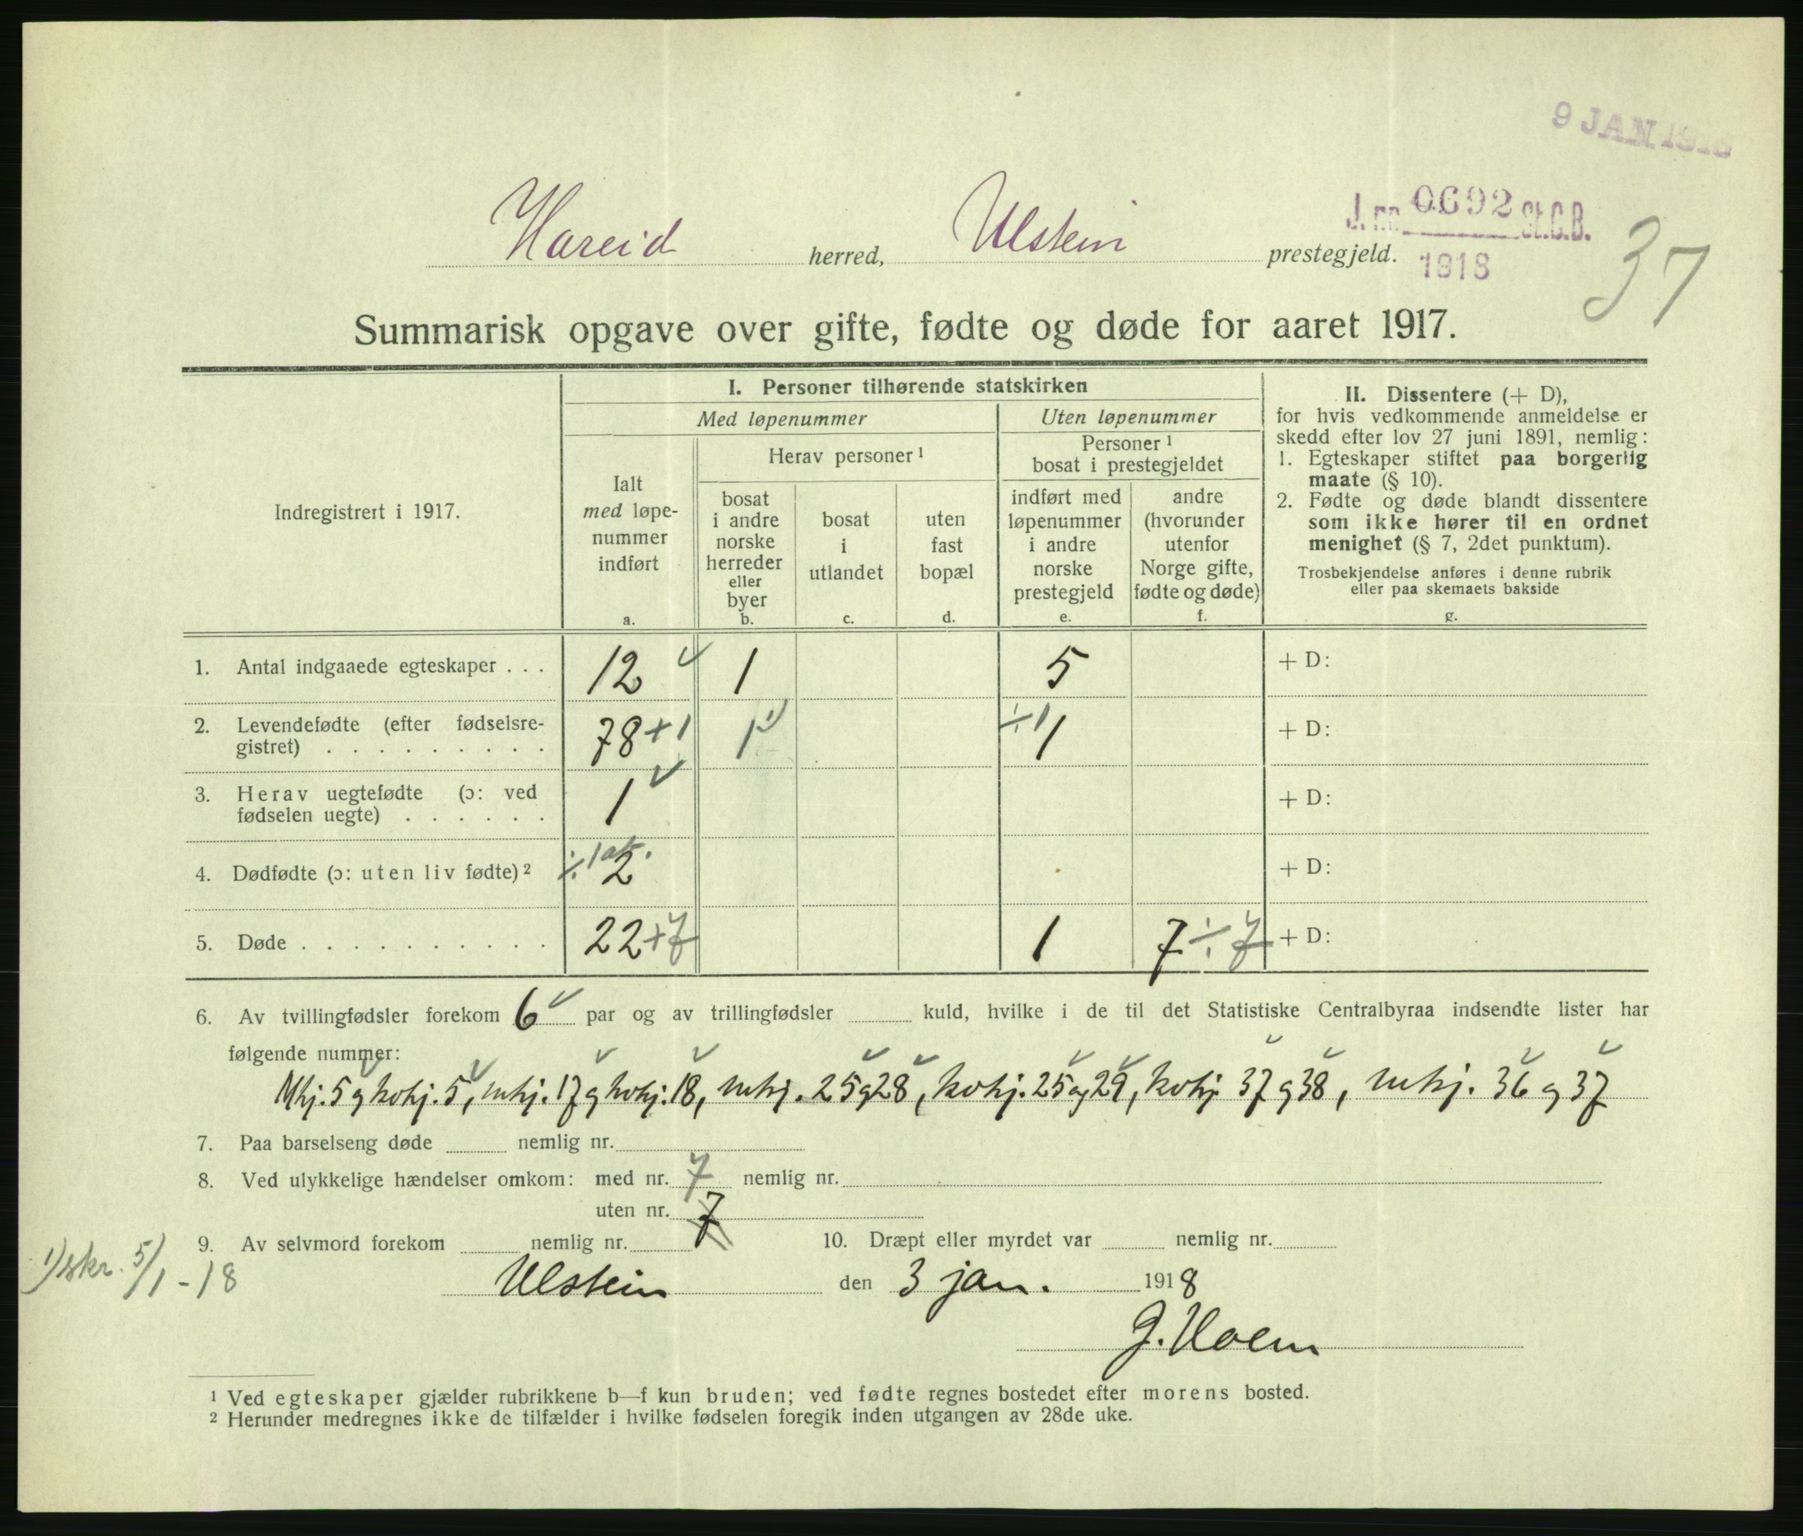 9 JAN 1918
J. no. 0692 St.C.B.
1918
37
Hareid herred, Ulstein prestegjeld.
Summarisk opgave over gifte, fødte og døde for aaret 1917.
Indregistrert i 1917.
I. Personer tilhørende statskirken
Med løpenummer
Uten løpenummer
Ialt
med løpe-
nummer
indført
a.
Herav personer ¹
bosat
i andre
norske
herreder
eller
byer
b.
bosat
i
utlandet
c.
uten
fast
bopæl
d.
Personer ¹
bosat i prestegjeldet
indført med
løpenummer
i andre
norske
prestegjeld
e.
andre
(hvorunder
utenfor
Norge gifte,
fødte og døde)
f.
II. Dissentere (+ D),
for hvis vedkommende anmeldelse er
skedd efter lov 27 juni 1891, nemlig:
1. Egteskaper stiftet paa borgerlig
maate (§ 10).
2. Fødte og døde blandt dissentere
som ikke hører til en ordnet
menighet (§ 7, 2det punktum).
Trosbekjendelse anføres i denne rubrik
eller paa skemaets bakside
g.
1. Antal indgaaede egteskaper . . . 12 1 5 + D:
2. Levendefødte (efter fødselsre-
gistret) . . . . . . . . . 78 +1 1 ¹) ÷1 1 + D:
3. Herav uegtefødte (ɔ: ved
fødselen uegte) . . . . . . 1 + D:
4. Dødfødte (ɔ: uten liv fødte) ² ÷1 2 + D:
5. Døde . . . . . . . . . . 22 +7 1 7 ÷7 + D:
6. Av tvillingfødsler forekom 6 par og av trillingfødsler kuld, hvilke i de til det Statistiske Centralbyraa indsendte lister har
følgende nummer:
Mkj. 5 g kvkj. 5, mkj. 17 g kvkj. 18, mkj. 25 g 28, kvkj. 25 og 29, kvkj. 37 g 38, mkj. 36 g 37
7. Paa barselseng døde nemlig nr.
8. Ved ulykkelige hændelser omkom: med nr. 7 nemlig nr.
uten nr. 7
9. Av selvmord forekom nemlig nr. 10. Dræpt eller myrdet var nemlig nr.
¹) skr. 5/1 - 18
Ulstein den 3 jan. 1918
J. Hoem
¹ Ved egteskaper gjælder rubrikkene b—f kun bruden; ved fødte regnes bostedet efter morens bosted.
² Herunder medregnes ikke de tilfælder i hvilke fødselen foregik inden utgangen av 28de uke.